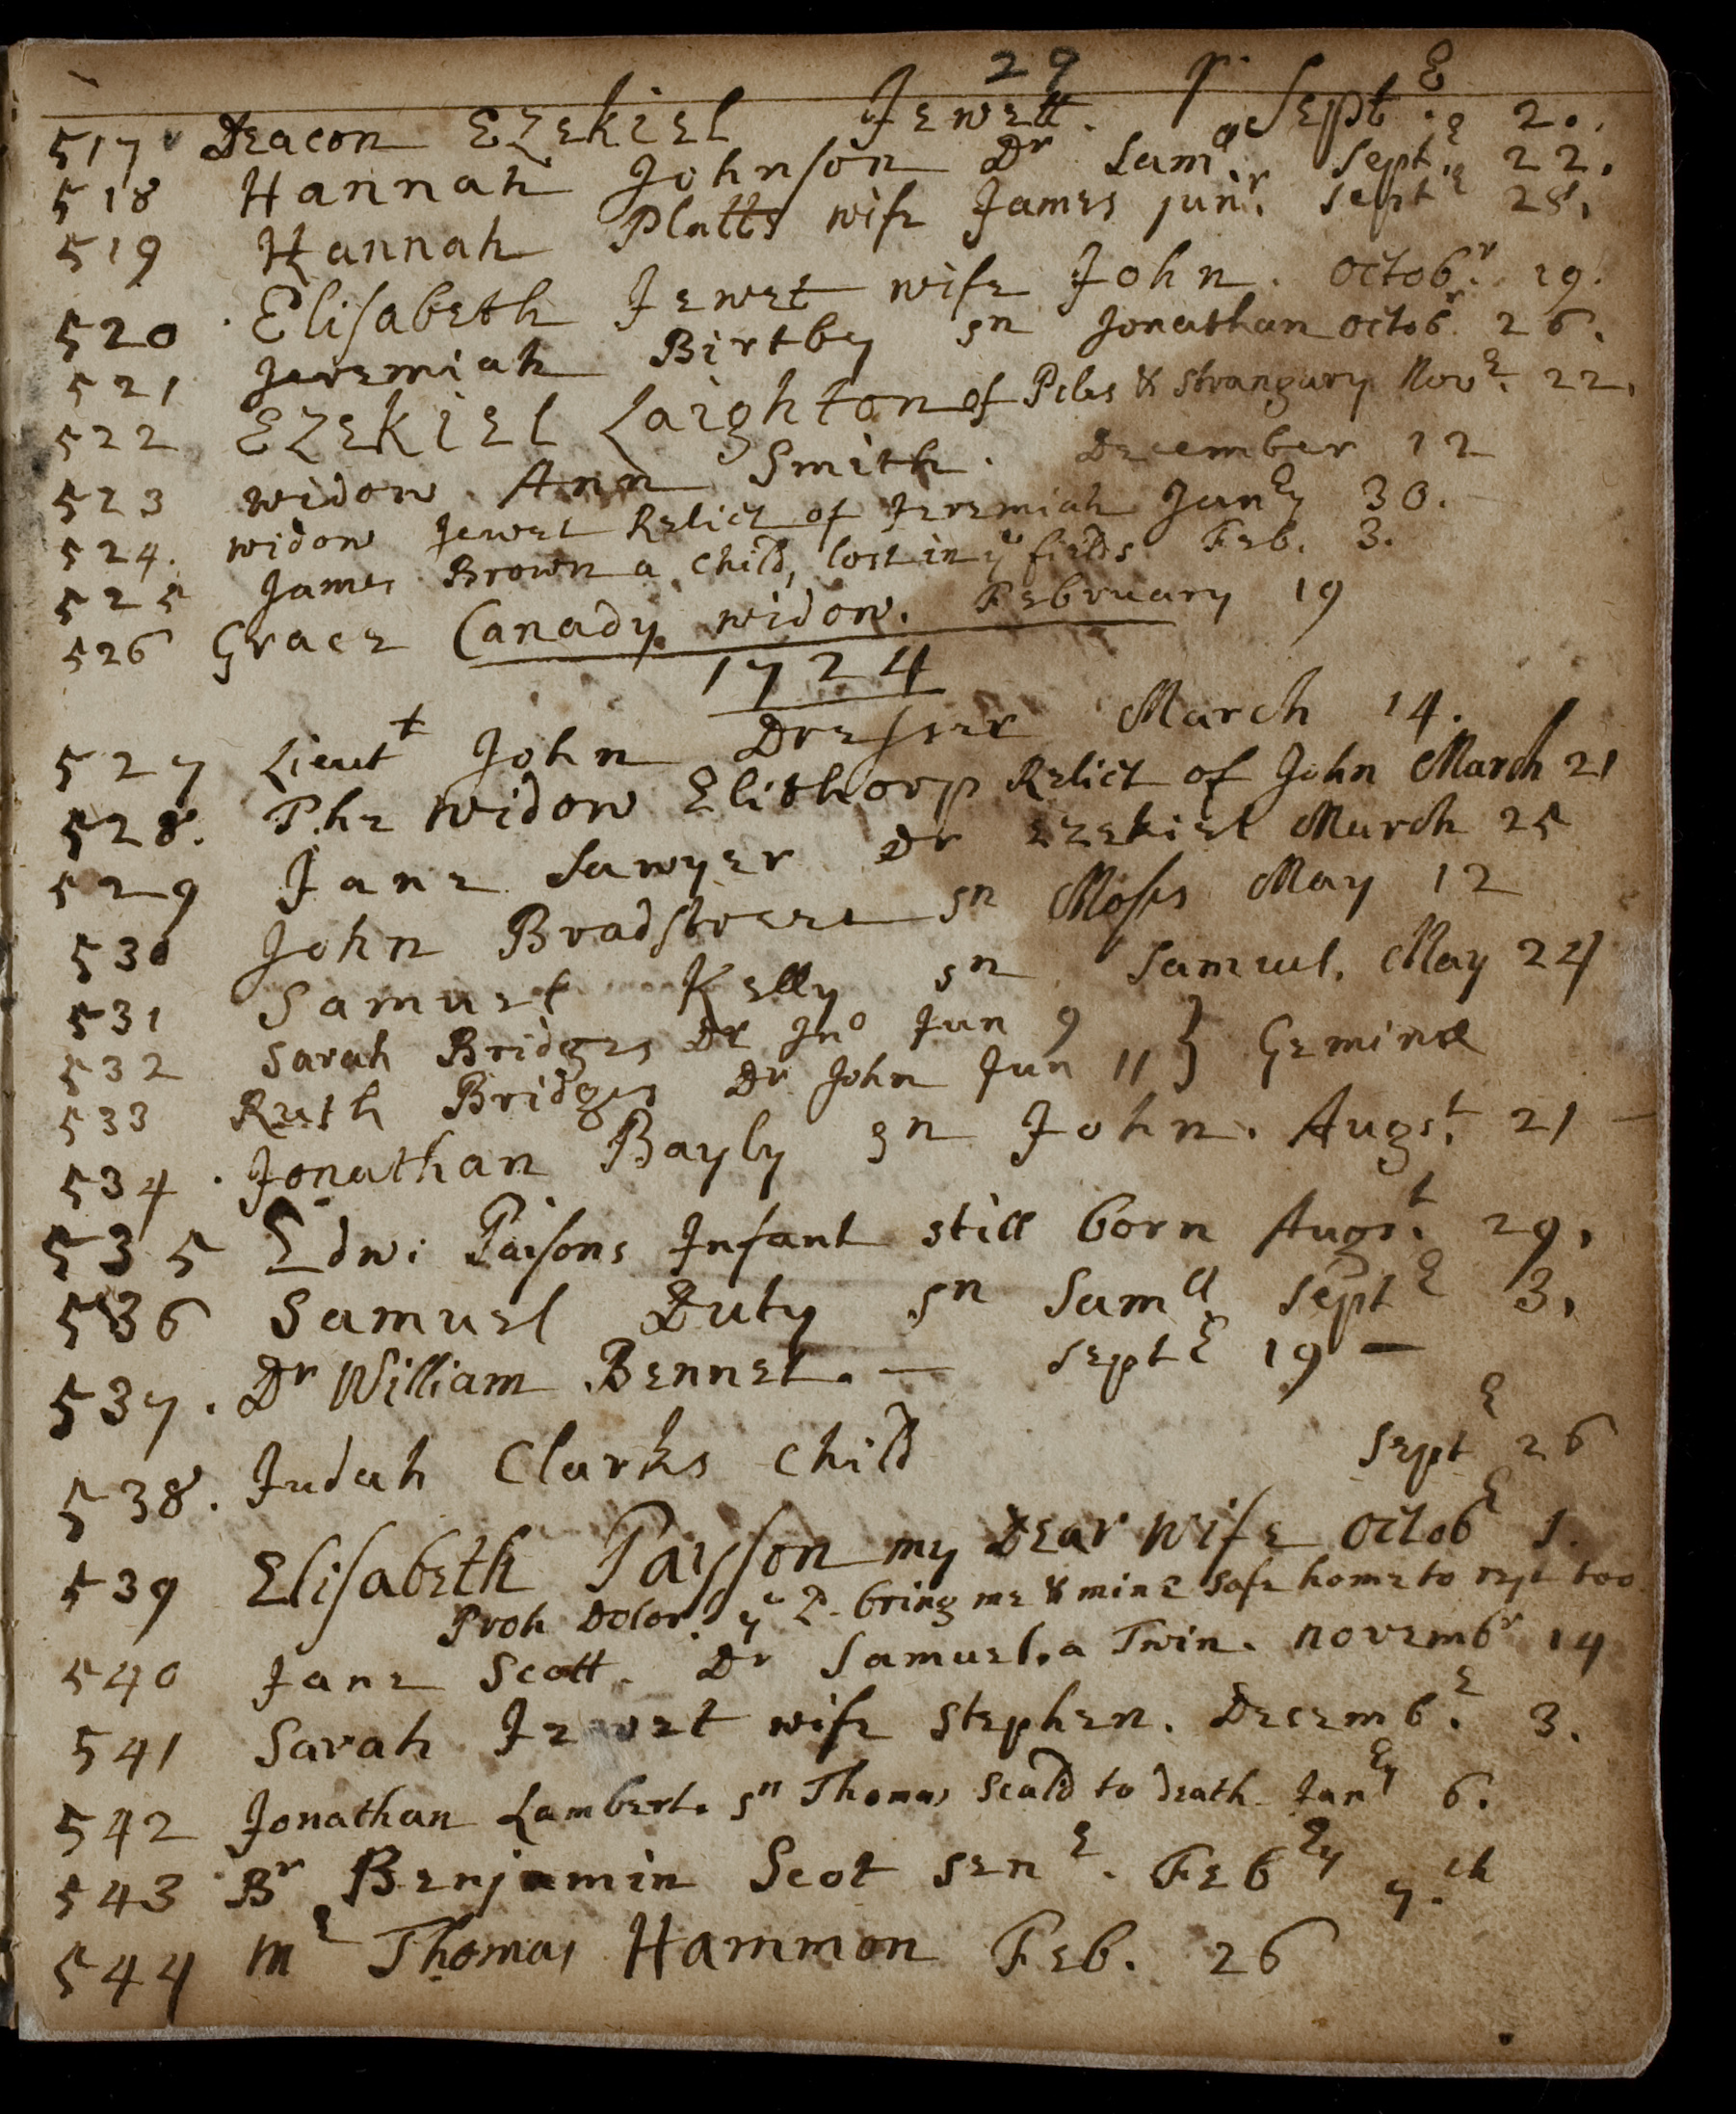 29
517 Deacon Ezekiel Jewett. Septe. 20.
518 Hannah Johnson Dr Samll. Septe. 22.
519 Hannah Platts wife James junr. Septe 28.
520 Elisabeth Jewet wife John. Octobr. 19.
521 Jeremiah Birtby sn Jonathan Octobr 26.
522 Ezekiel Laighton of Piles & Strangury Nove. 22.
523 widow Ann Smith. December 12
524. widow Jewet Relict of Jeremiah Janey 30.
525 James Brown a child, lost in ye fields Feb. 3.
526 Grace Canady widow. February 19
1724
527 Lieutt John Dresser March 14.
528. The widow Elithorp Relict of John March 21
529 Jane Sawyer Dr Ezekiel March 25
530 John Bradstreet sn Moses May 12
531 Samuel Kelly sn Samuel. May 24
532 Sarah Bridges Dr Jno Jun 9 } Geminæ
533 Ruth Bridges Dr John Jun 11
534. Jonathan Bayly sn John. Augst. 21
535 Edw: Paisons Infant still born Augst. 29.
536 Samuel Duty sn Samll. Septe 3.
537. Dr William Bennet. — Septe 19 —
538. Judah Clarks child Septe 26
539 Elisabeth Paysson my Dear wife Octobe 1.
Proh Dolor. ye L. bring me & mine safe home to rest too
540 Jane Scott. Dr Samuel. a Twin. Novembr 14
541 Sarah Jewet wife Stephen. Decembe. 3.
542 Jonathan Lambert. sn Thomas Scal'd to death Janey 6.
543 Br Benjamin Scot sene. Febey 7.th
544 Me Thomas Hammon Feb. 26